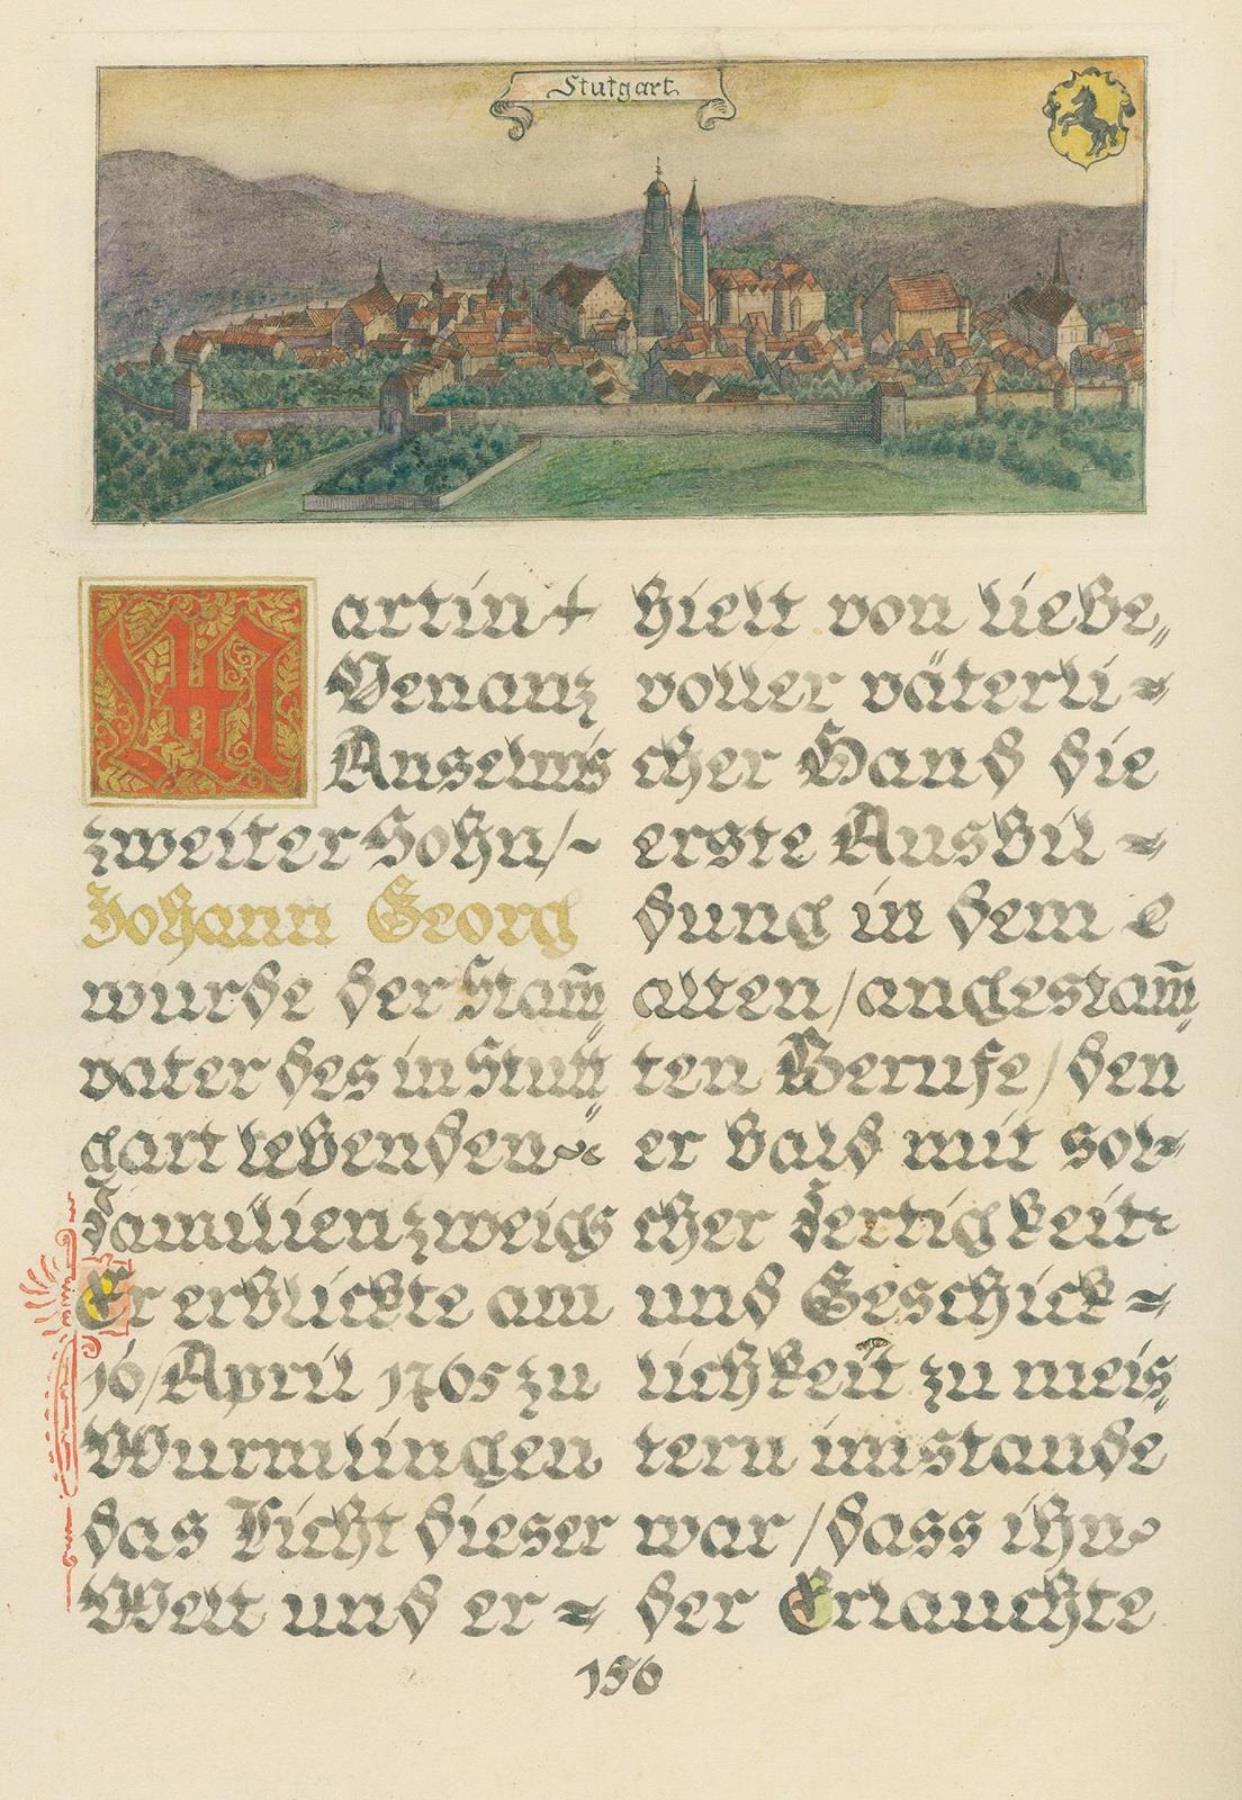 Stutgart
Martin +
Venanz
Anselms
zweiter Sohn/~
Johann Georg
wurde der Stam̄„
vater des in Stutt„
gart lebenden~
Familienzweigs
Er erblickte am
16/April 1765 zu
Wurmlingen
das Licht dieser
Welt und er=
hielt von liebe„
voller väterli=
cher Hand die
erste Ausbil=
dung in dem
alten/angestam̄„
ten Berufe/den
er bald mit sol=
cher Fertigkeit
und Geschick=
lichkeit zu meis„
tern imstande
war/dass ihn
der Erlauchte
156